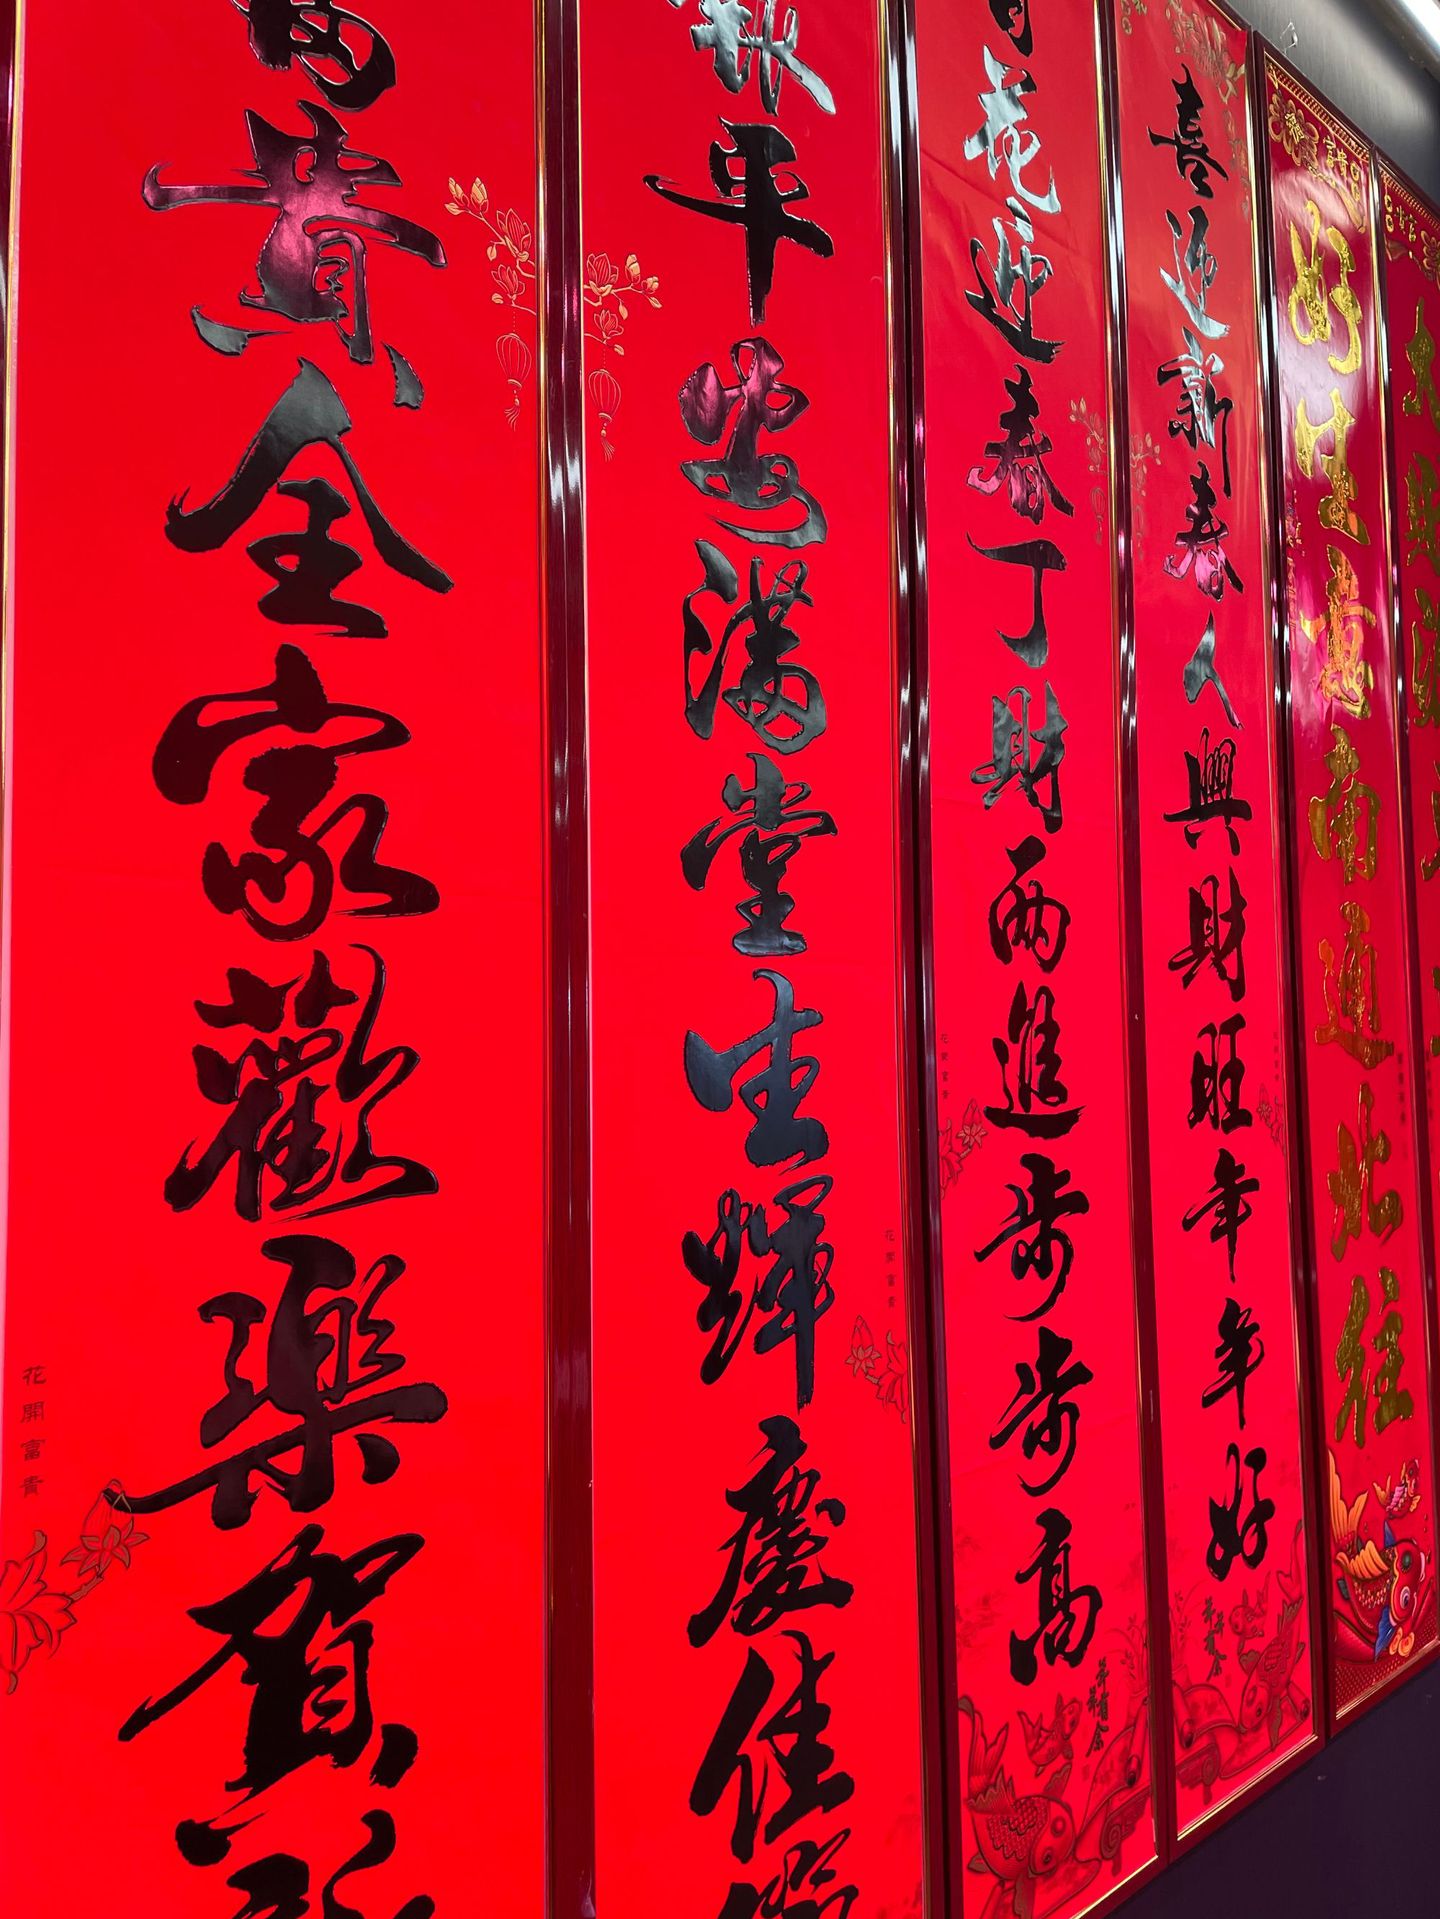 好生意南通北往
喜迎新春人興財旺年年好
年年有余
花迎春丁財两進步步高
年年有余
花開富貴
平安滿堂生輝慶佳
花開富貴
貴全家歡樂賀
花開富貴